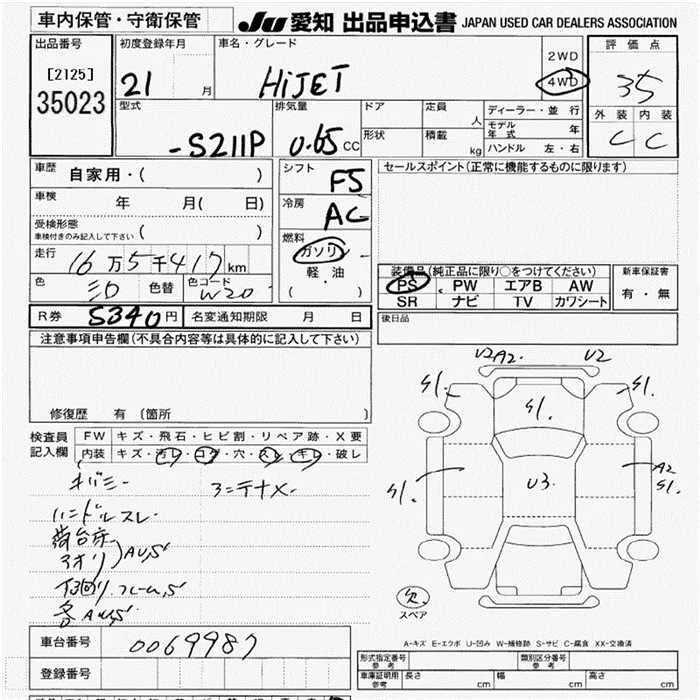 車内保管・守衛保管 JU 愛知 出品申込書 JAPAN USED CAR DEALERS ASSOCIATION
出品番号
[2125]
35023
初度登録年月 21 月
車名・グレード HiJET
2WD
4WD
評価点
3.5
外装 内装
C C
型式 -S211P
排気量 0.65 CC
ドア 定員 人
形状 積載 kg
ディーラー・並行
モデル年式 年
ハンドル 左・右
車歴 自家用・( )
車検 年 月( 日)
受検形態
車検付きのみ記入して下さい ( )
走行 16万5千417km
色 シロ 色替 色コード W20
シフト F5
冷房 AC
燃料
ガソリン
・
軽油
( )
セールスポイント(正常に機能するものに限ります)
装備品(純正品に限り○をつけてください)
PS PW エアB AW
SR ナビ TV カワシート
新車保証書
有・無
R券 5340円 名変通知期限 月 日
後日品
注意事項申告欄(不具合内容等は具体的に記入して下さい)
修復歴 有 〔箇所 〕
検査員
記入欄
FW キズ・飛石・ヒビ割・リペア跡・X要
内装 キズ・汚レ・コゲ・穴・スレ・キレ・破レ
ハンドルスレ
荷台床
アオリ)AU,S
下回リ フレームS
各AU,S
U2A2 U2
S1 S1
S1
U3
S1
A2
S1
欠
スペア
A-キズ E-エクボ U-凹み W-補修跡 S-サビ C-腐食 XX-交換済
車台番号 0069987
登録番号
形式指定番号
参考
類別区分番号
参考
車庫証明用
参考
長さ cm 幅 cm 高さ cm